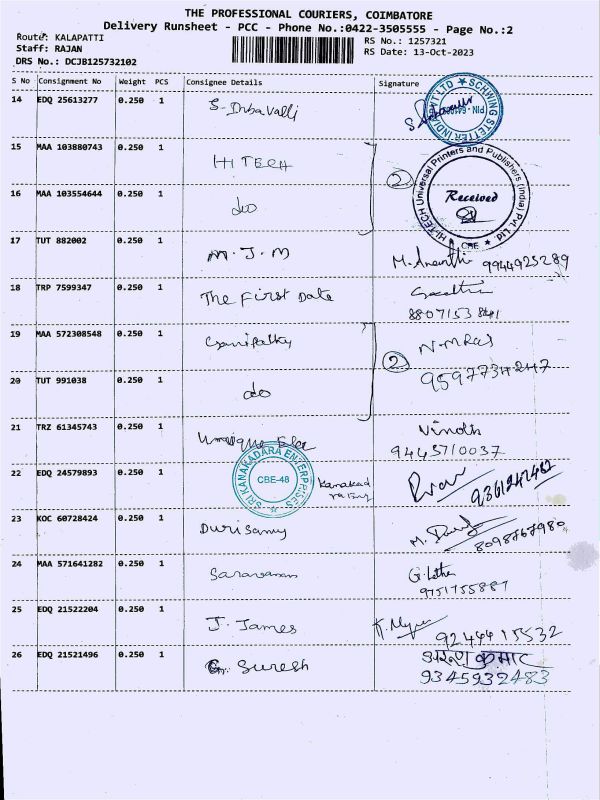 THE PROFESSIONAL COURIERS, COIMBATORE
Delivery Runsheet - PCC - Phone No.:0422-3505555 - Page No.:2
Route: KALAPATTI
RS No.: 1257321
Staff: RAJAN
RS Date: 13-Oct-2023
DRS No.: DCJB125732102
S No Consignment No Weight PCS Consignee Details Signature
14 EDQ 25613277 0.250 1 S. Inbavalli
SCHWING STETTER INDIA PVT LTD
15 MAA 103880743 0.250 1 HI TECH
2
HI-TECH Universal Printers and Publishers (India) Pvt. Ltd.
Received
CBE
16 MAA 103554644 0.250 1 do
17 TUT 882002 0.250 1 M.J.M M. Ananthi 9944925289
18 TRP 7599347 0.250 1 The First Date
8807153841
19 MAA 572308548 0.250 1 N.M Raj
2 9597734247
20 TUT 991038 0.250 1 do
21 TRZ 61345743 0.250 1 Vinoth
9445710037
22 EDQ 24579893 0.250 1
SRI KANAKADARA ENTERPRISES
CBE-48
9361247482
23 KOC 60728424 0.250 1 Durisamy
8098767980
24 MAA 571641282 0.250 1 Saravanan G. Latha
9751755887
25 EDQ 21522204 0.250 1 J. James
9244415532
26 EDQ 21521496 0.250 1 G. Suresh कुमार
9345932483